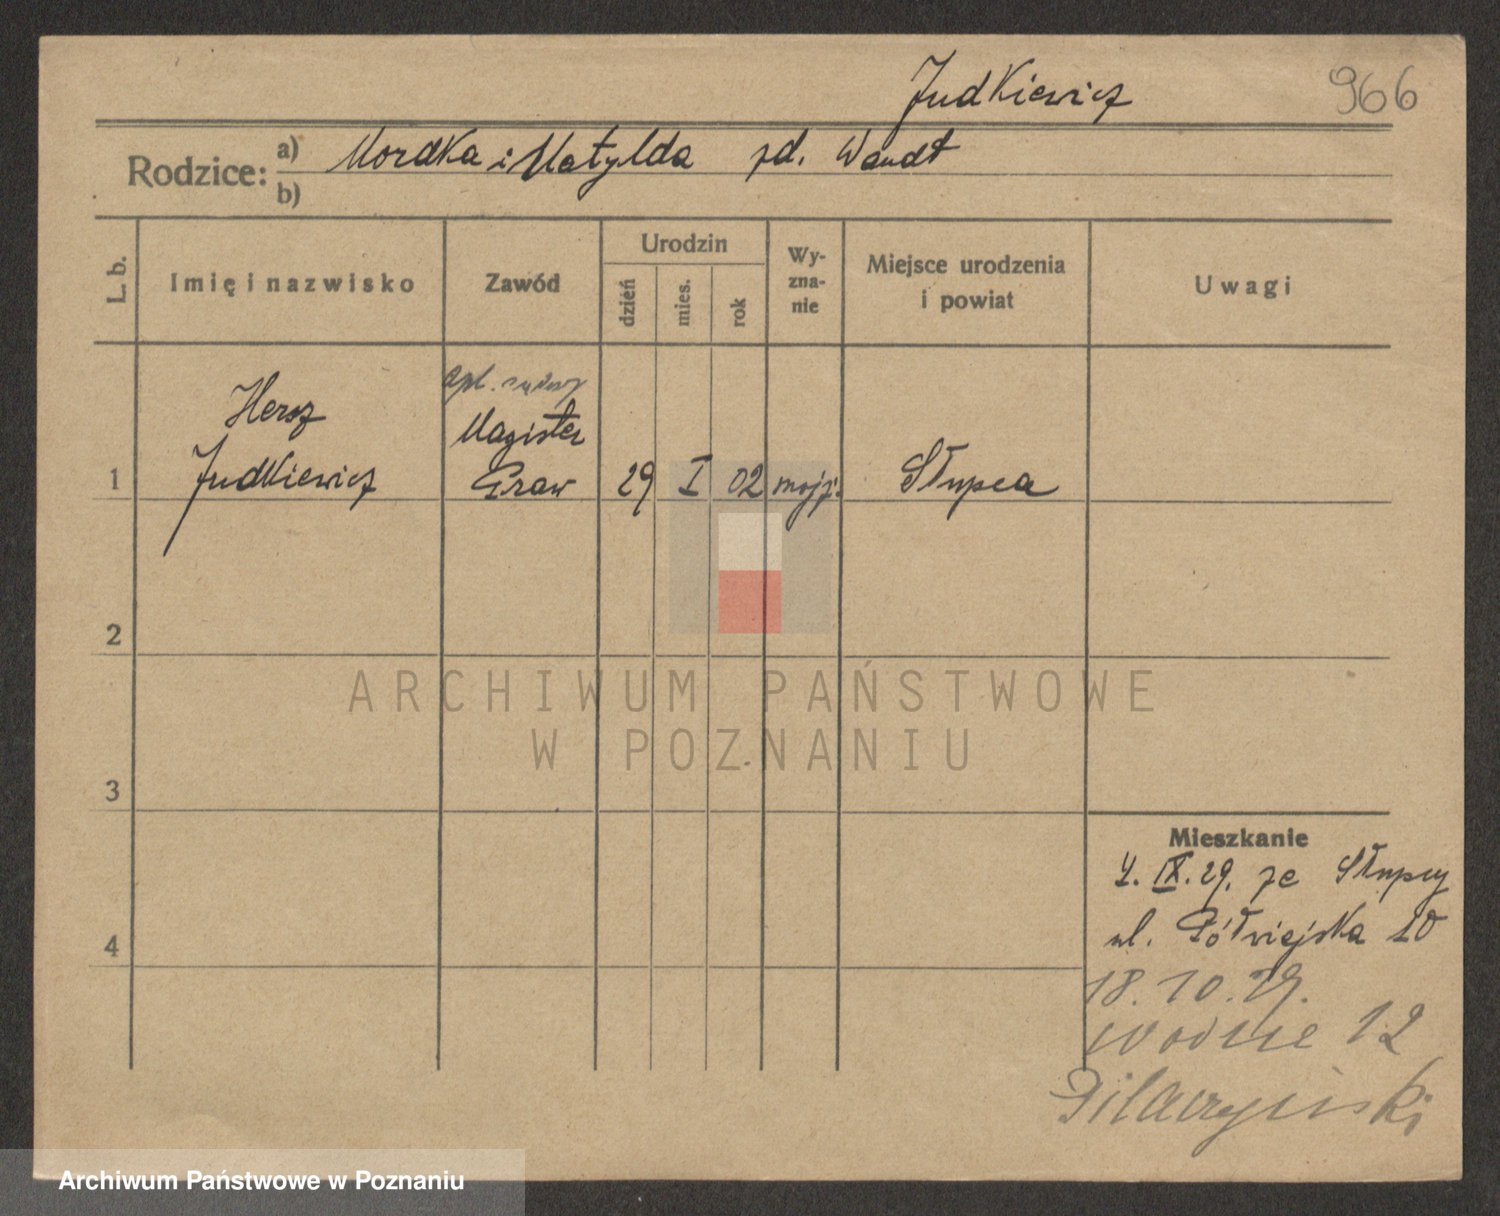 Judkiewicz
966
Rodzice:
a) Mordka i Matylda zd. Wandt
b)
L. b.
Imię i nazwisko
Zawód
Urodzin
dzień
mies.
rok
Wy-
zna-
nie
Miejsce urodzenia
i powiat
Uwagi
apl. sądowy
Hersz
Magister
1 Judkiewicz Praw 29 I 02 mojż. Słupca
2
3
4
Mieszkanie
4. IX. 29. ze Słupcy
ul. Półwiejska 10
18.10.29.
Wodne 12
ARCHIWUM PAŃSTWOWE
W POZNANIU
Archiwum Państwowe w Poznaniu